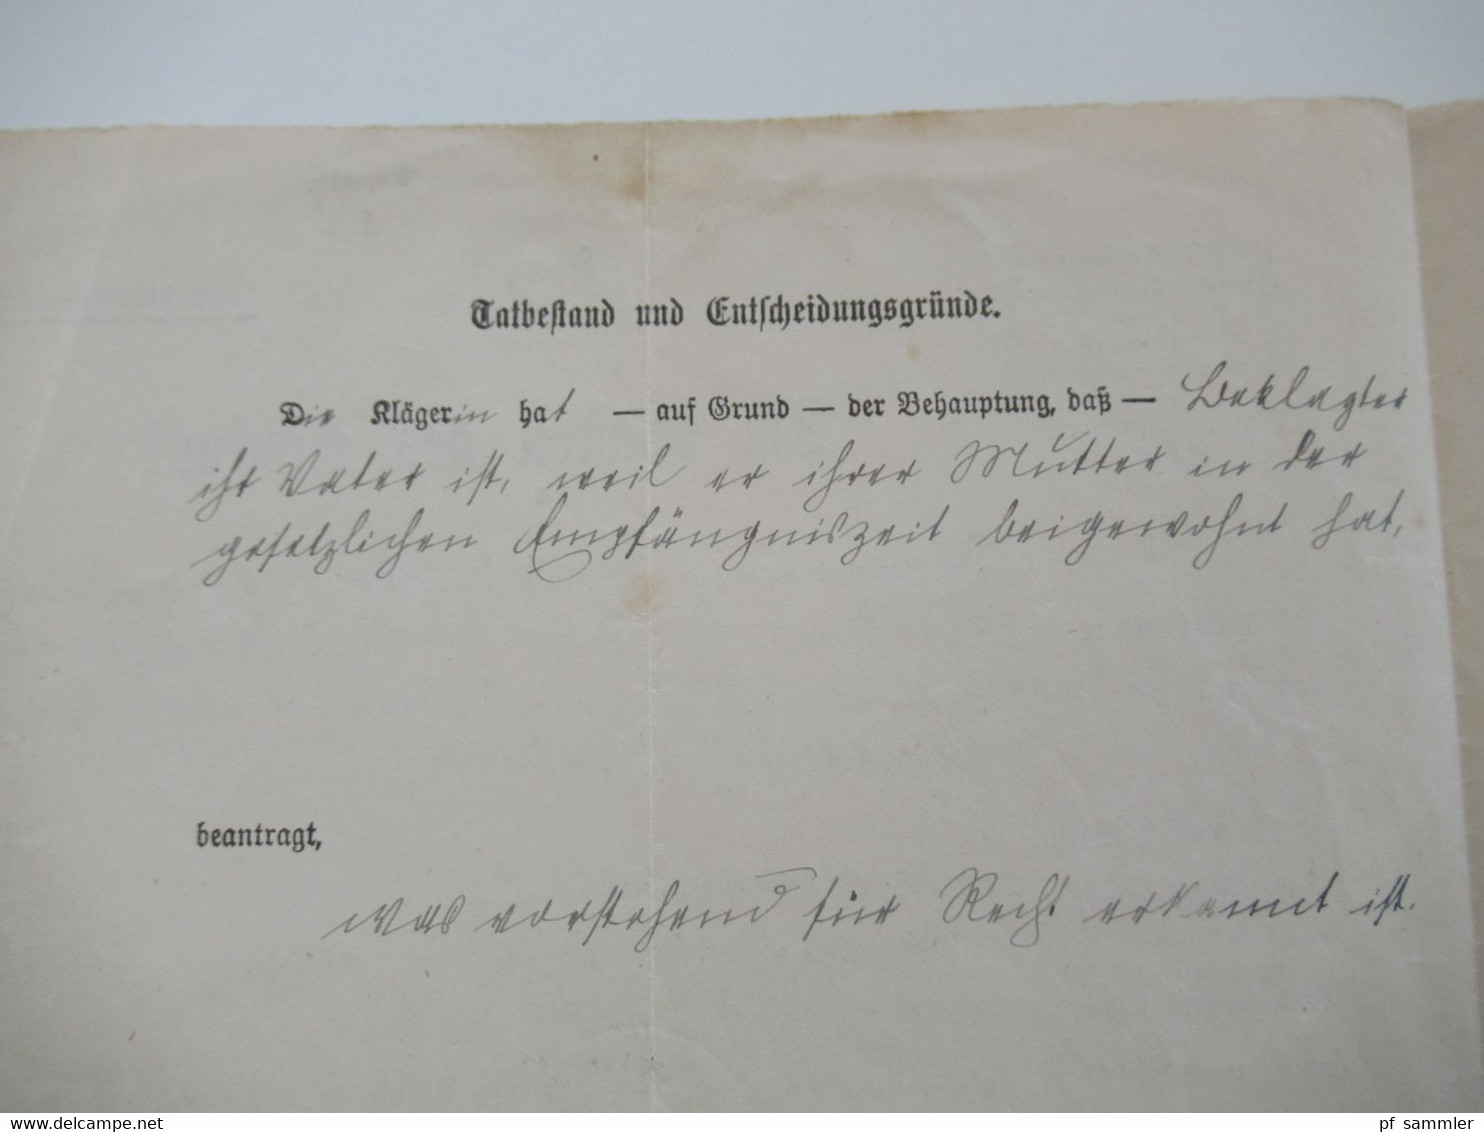 Tatbestand und Entscheidungsgründe.
Die Klägerin hat — auf Grund — der Behauptung, daß — Beklagter
ihr Vater ist, weil er ihrer Mutter in der
gesetzlichen Empfängniszeit beigewohnt hat,
beantragt,
was vorstehend für Recht erkannt ist.
www.delcampe.net
pf_sammler